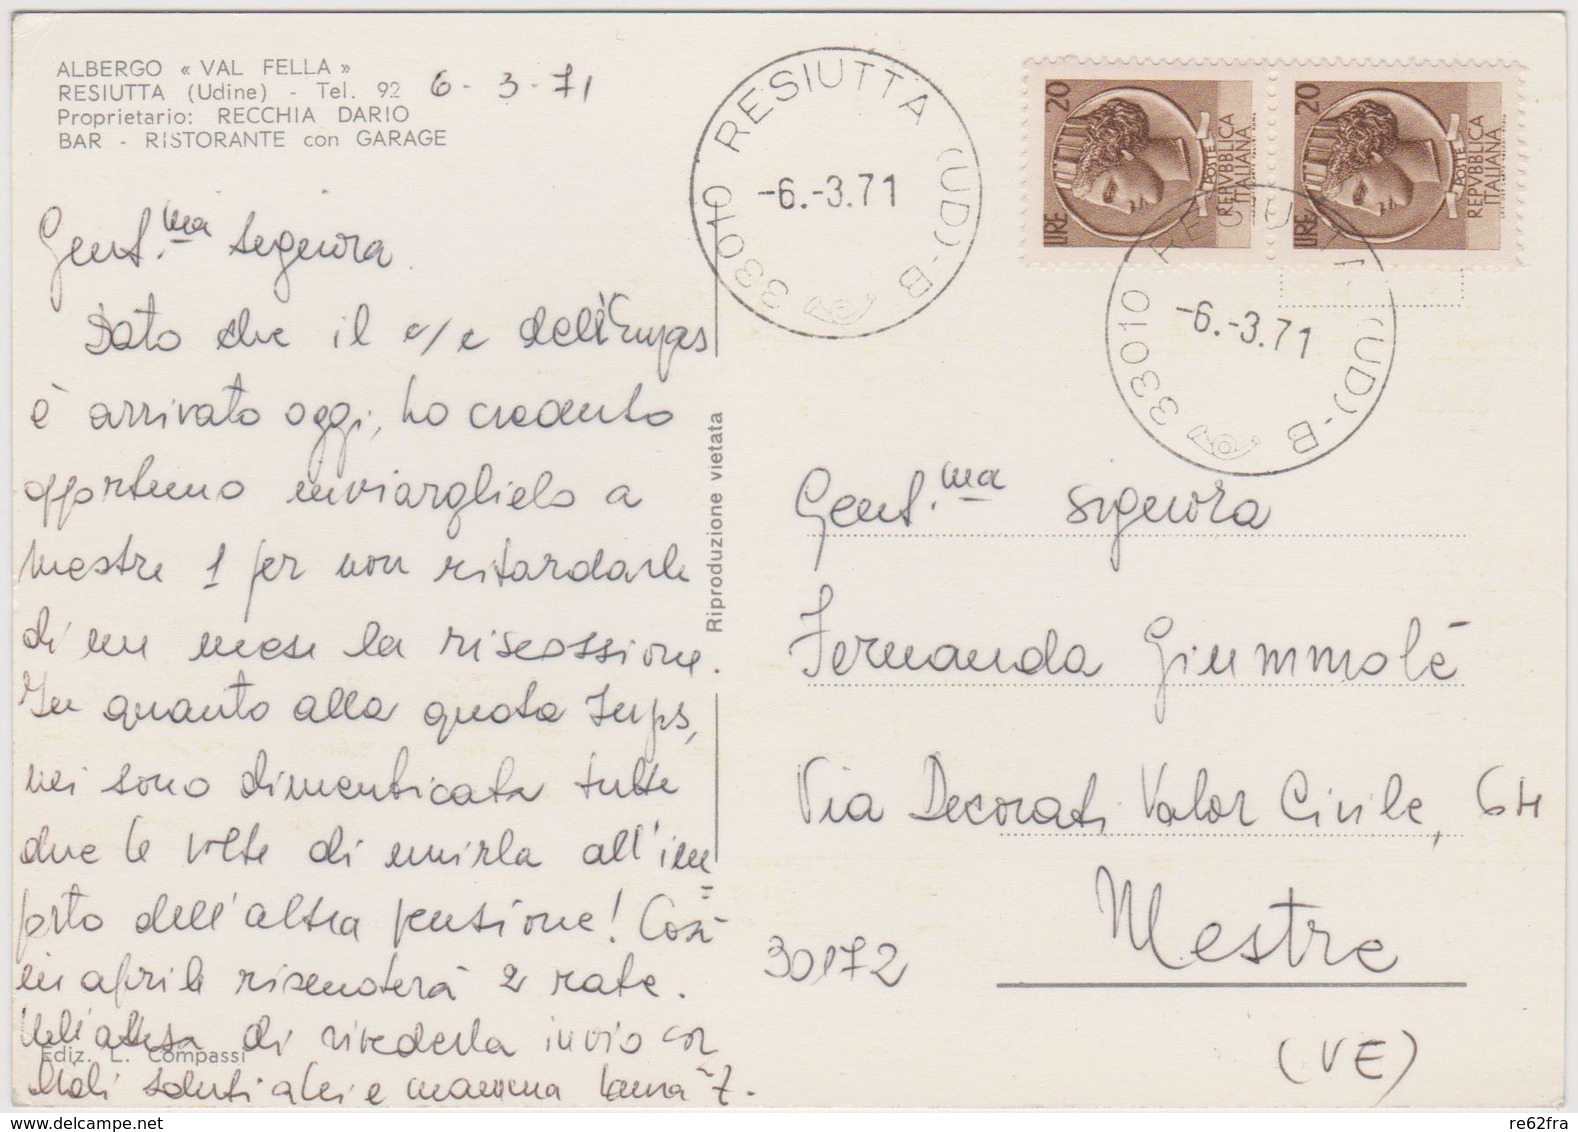 ALBERGO « VAL FELLA »
RESIUTTA (Udine) - Tel. 92
Proprietario: RECCHIA DARIO
BAR - RISTORANTE con GARAGE
6-3-71
Gent.ma signora
Dato che il c/c dell'Enpas
è arrivato oggi, ho creduto
opportuno inviarglielo a
Mestre 1 per non ritardarle
di un mese la riscossione.
In quanto alla quota Inps,
mi sono dimenticata tutte
due le volte di unirla all'im=
porto dell'altra pensione! Così
in aprile riscuoterà 2 rate.
Nell'attesa di rivederla invio cor
diali saluti a lei e mamma
Ediz. L. Compassi
Riproduzione vietata
33010 RESIUTTA (UD) - B
-6.-3.71
LIRE 20
POSTE
REPVBBLICA
ITALIANA
LIRE 20
POSTE
REPVBBLICA
ITALIANA
33010 RESIUTTA (UD) - B
-6.-3.71
Gent.ma signora
Fernanda Giummolè
Via Decorati Valor Civile, 64
30172 Mestre
(VE)
delcampe.net
re62fra